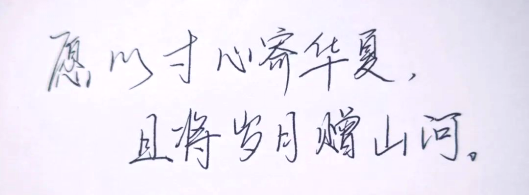 愿以寸心寄华夏，
且将岁月赠山河。